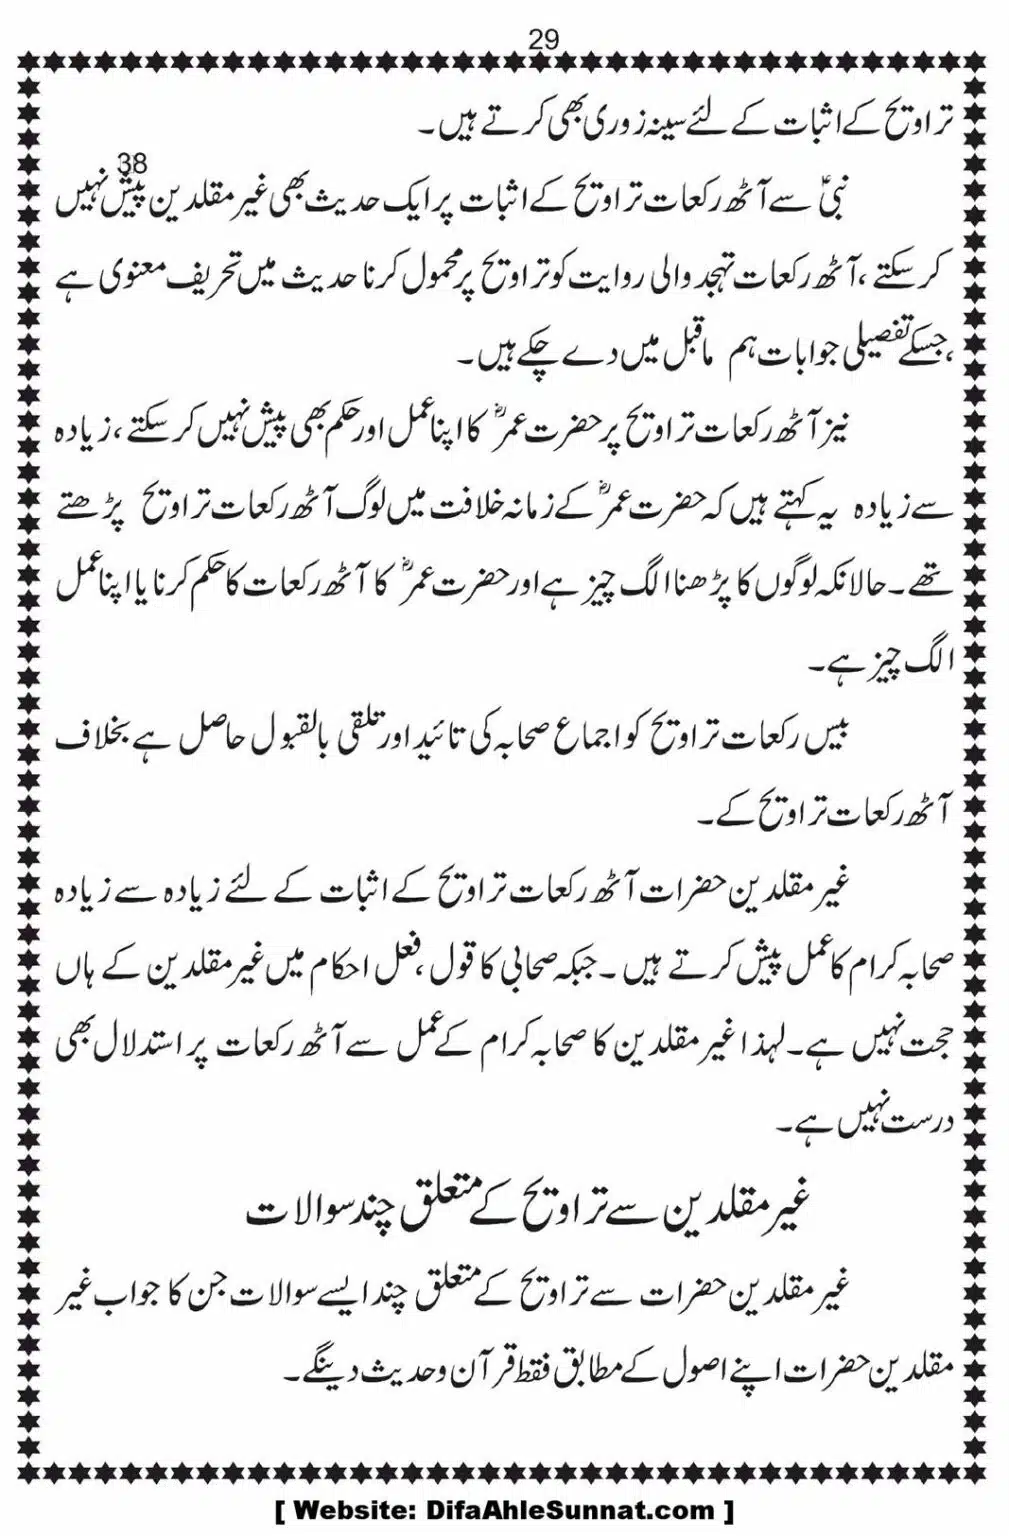 29
تراویح کے اثبات کے لئے سینہ زوری بھی کرتے ہیں۔
38
نبیؐ سے آٹھ رکعات تراویح کے اثبات پر ایک حدیث بھی غیر مقلدین پیش نہیں
کر سکتے ،آٹھ رکعات تہجد والی روایت کو تراویح پر محمول کرنا حدیث میں تحریف معنوی ہے
،جسکے تفصیلی جوابات ہم ماقبل میں دے چکے ہیں۔
نیز آٹھ رکعات تراویح پر حضرت عمرؓ کا اپنا عمل اور حکم بھی پیش نہیں کر سکتے ،زیادہ
سے زیادہ یہ کہتے ہیں کہ حضرت عمرؓ کے زمانہ خلافت میں لوگ آٹھ رکعات تراویح پڑھتے
تھے۔ حالانکہ لوگوں کا پڑھنا الگ چیز ہے اور حضرت عمرؓ کا آٹھ رکعات کا حکم کرنا یا اپنا عمل
الگ چیز ہے۔
بیس رکعات تراویح کو اجماع صحابہ کی تائید اور تلقی بالقبول حاصل ہے بخلاف
آٹھ رکعات تراویح کے۔
غیر مقلدین حضرات آٹھ رکعات تراویح کے اثبات کے لئے زیادہ سے زیادہ
صحابہ کرام کا عمل پیش کرتے ہیں ۔جبکہ صحابی کا قول ،فعل احکام میں غیر مقلدین کے ہاں
حجت نہیں ہے۔ لہذا غیر مقلدین کا صحابہ کرام کے عمل سے آٹھ رکعات پر استدلال بھی
درست نہیں ہے۔
غیر مقلدین سے تراویح کے متعلق چند سوالات
غیر مقلدین حضرات سے تراویح کے متعلق چند ایسے سوالات جن کا جواب غیر
مقلدین حضرات اپنے اصول کے مطابق فقط قرآن وحدیث دینگے۔
[ Website: DifaAhleSunnat.com ]